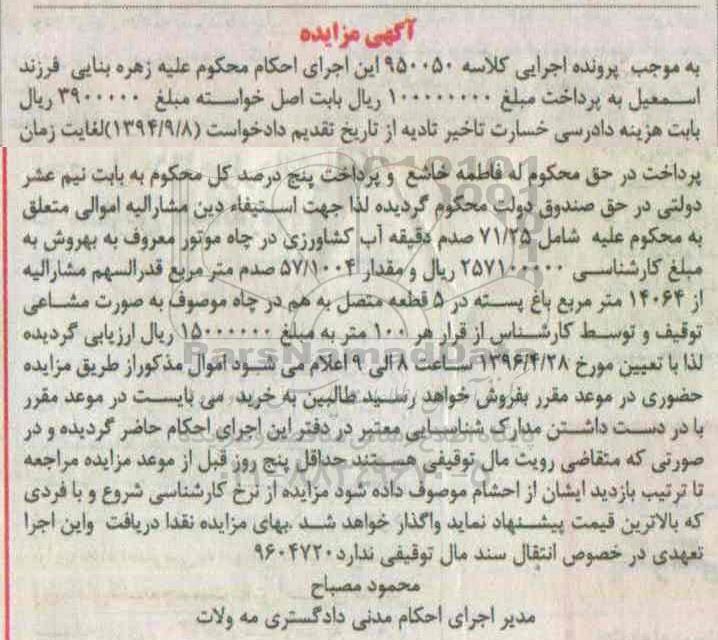 آگهی مزایده
به موجب پرونده اجرایی کلاسه ۹۵۰۰۵۰ این اجرای احکام محکوم علیه زهره بنایی فرزند
اسمعیل به پرداخت مبلغ ۱۰۰۰۰۰۰۰۰۰ ریال بابت اصل خواسته مبلغ ۳۹۰۰۰۰۰ ریال
بابت هزینه دادرسی خسارت تاخیر تادیه از تاریخ تقدیم دادخواست (۱۳۹۴/۹/۸)لغایت زمان
پرداخت در حق محکوم له فاطمه خاشع و پرداخت پنج درصد کل محکوم به بابت نیم عشر
دولتی در حق صندوق دولت محکوم گردیده لذا جهت استیفاء دین مشارالیه اموالی متعلق
به محکوم علیه شامل ۷۱/۲۵ صدم دقیقه آب کشاورزی در چاه موتور معروف به بهروش به
مبلغ کارشناسی ۲۵۷۱۰۰۰۰۰ ریال و مقدار ۵۷/۱۰۰۴ صدم متر مربع قدرالسهم مشارالیه
از ۱۴۰۶۴ متر مربع باغ پسته در ۵ قطعه متصل به هم در چاه موصوف به صورت مشاعی
توقیف و توسط کارشناس از قرار هر ۱۰۰ متر به مبلغ ۱۵۰۰۰۰۰۰ ریال ارزیابی گردیده
لذا با تعیین مورخ ۱۳۹۶/۴/۲۸ ساعت ۸ الی ۹ اعلام می شود اموال مذکوراز طریق مزایده
حضوری در موعد مقرر بفروش خواهد رسید طالبین به خرید می بایست در موعد مقرر
با در دست داشتن مدارک شناسایی معتبر در دفتر این اجرای احکام حاضر گردیده و در
صورتی که متقاضی رویت مال توقیفی هستند حداقل پنج روز قبل از موعد مزایده مراجعه
تا ترتیب بازدید ایشان از احشام موصوف داده شود مزایده از نرخ کارشناسی شروع و با فردی
که بالاترین قیمت پیشنهاد نماید واگذار خواهد شد .بهای مزایده نقدا دریافت واین اجرا
تعهدی در خصوص انتقال سند مال توقیفی ندارد ۹۶۰۴۷۲۰
محمود مصباح
مدیر اجرای احکام مدنی دادگستری مه ولات
ParsNamadData